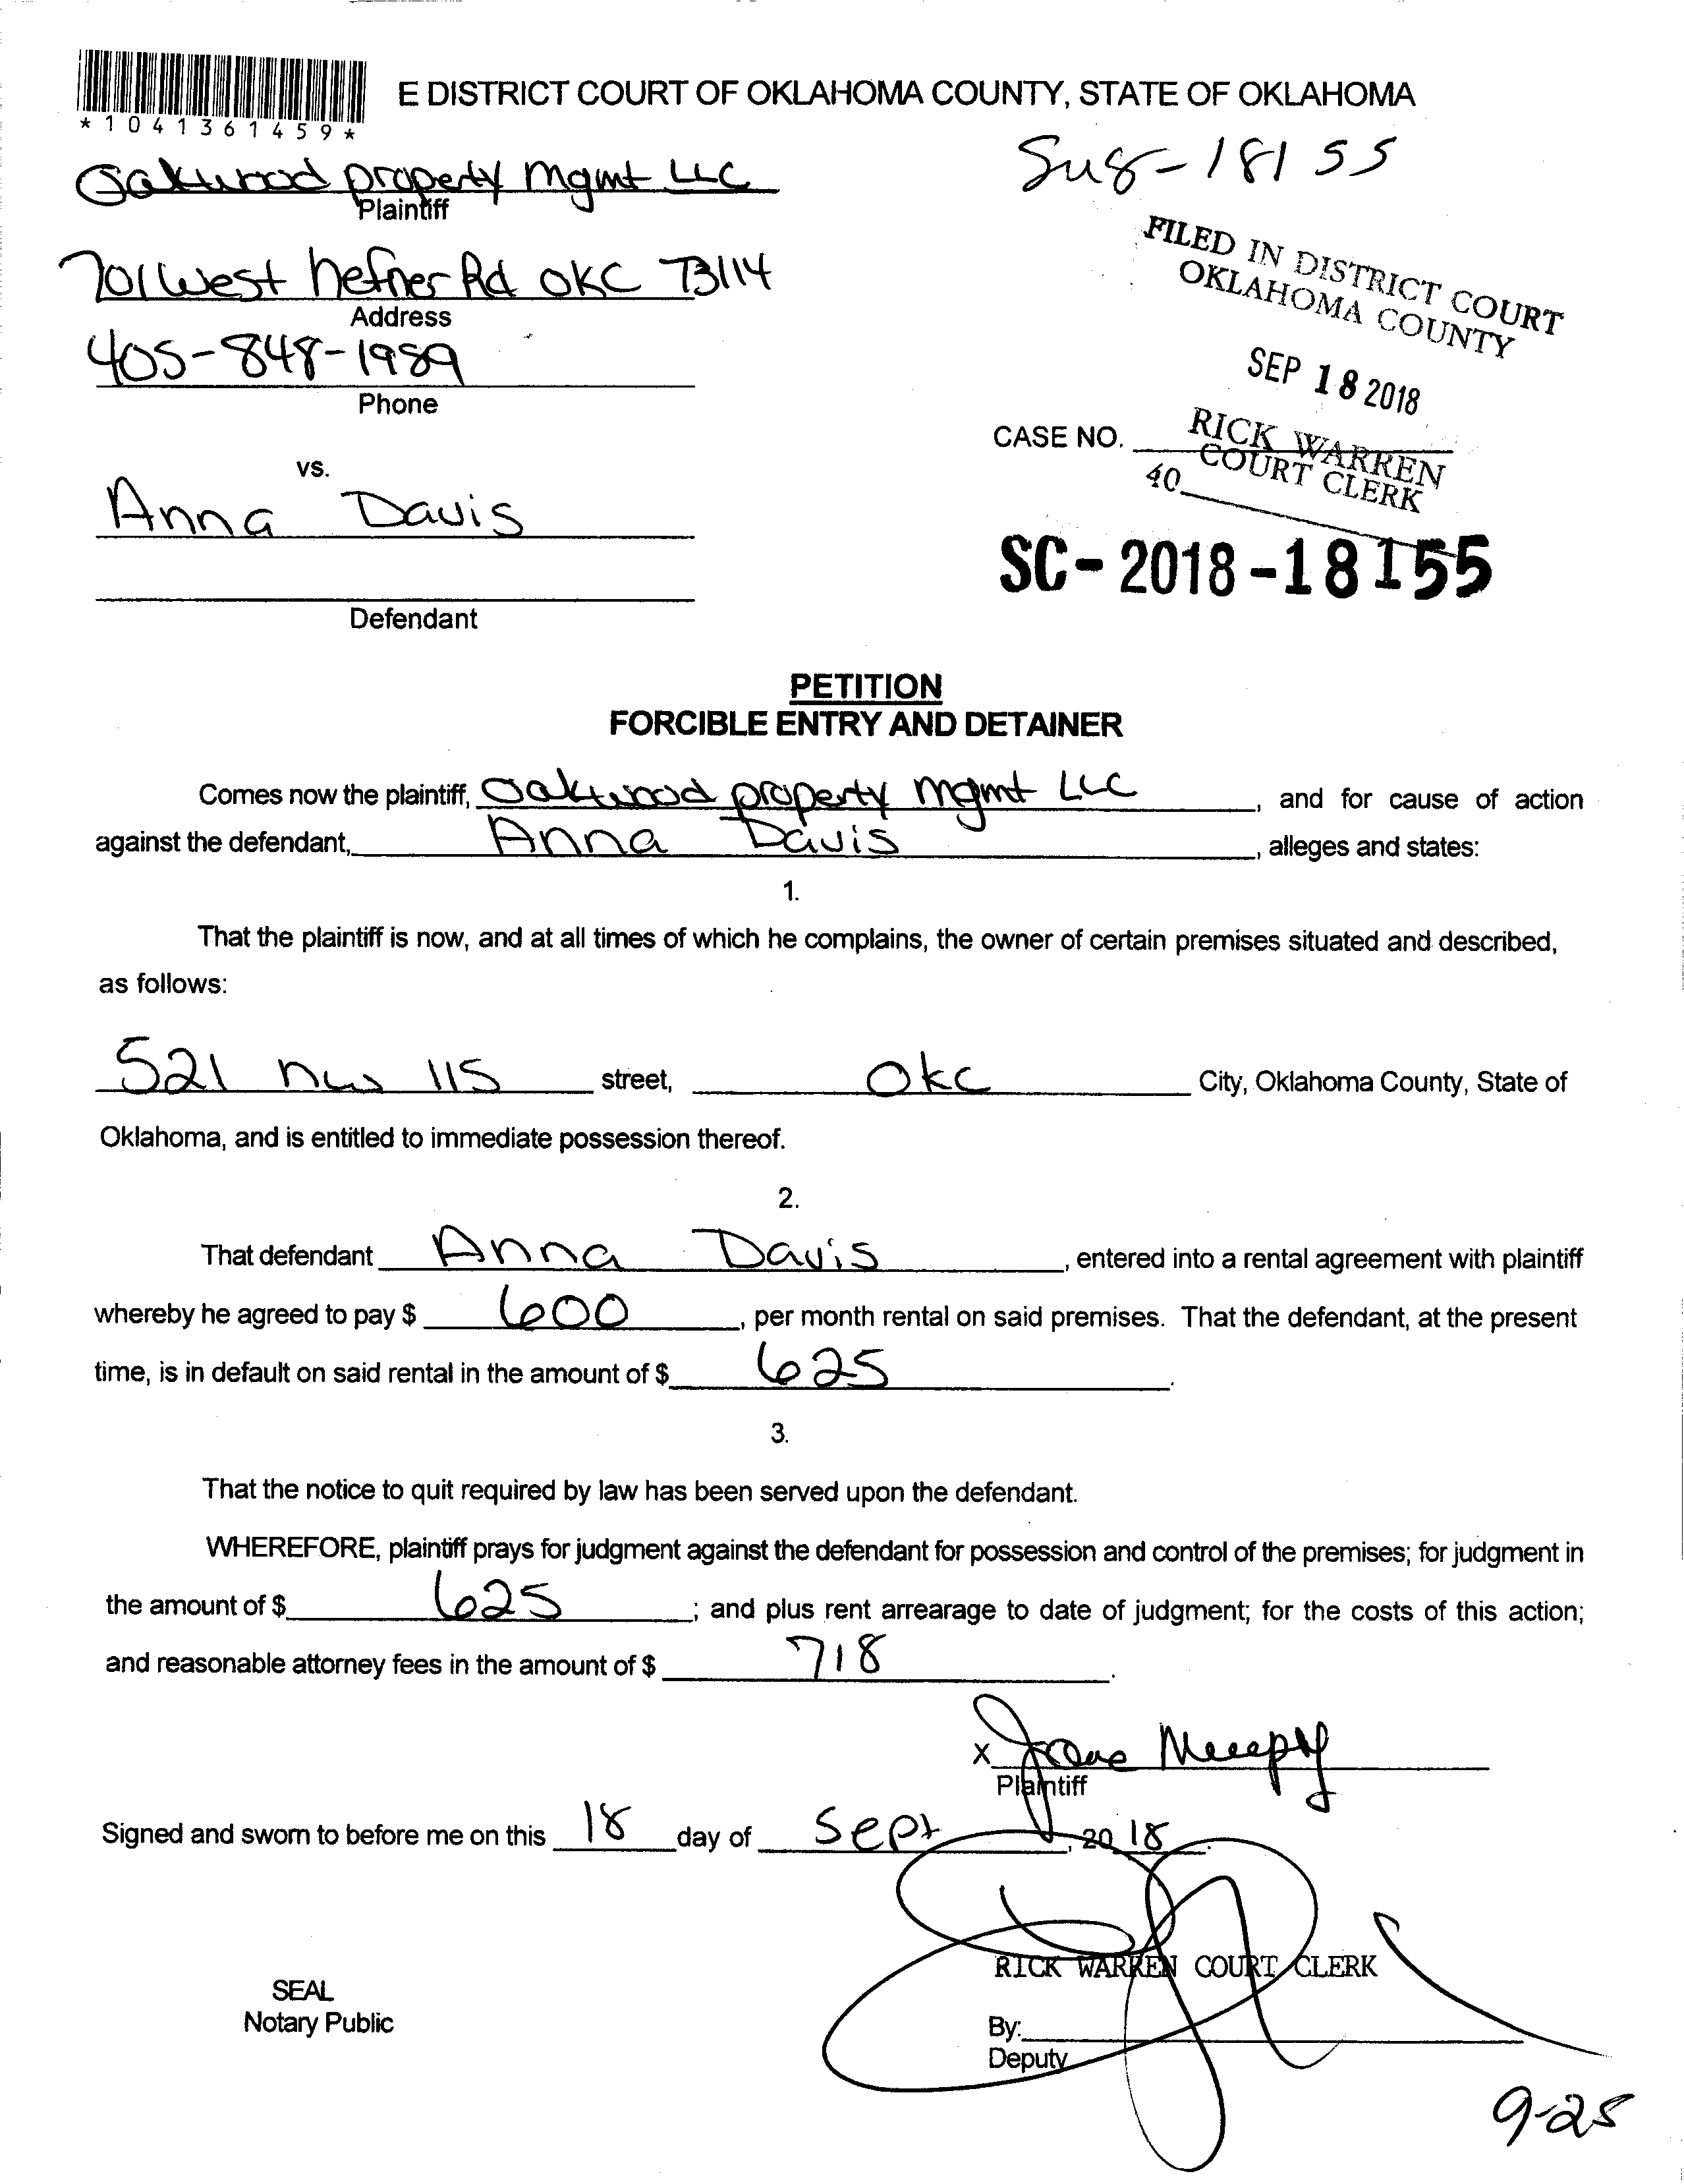 *1041361459*
E DISTRICT COURT OF OKLAHOMA COUNTY, STATE OF OKLAHOMA
Oakwood property mgmt LLC
Plaintiff
18155
701 West hefner Rd OKC 73114
Address
405-848-1989
Phone
FILED IN DISTRICT COURT
OKLAHOMA COUNTY
SEP 18 2018
RICK WARREN
COURT CLERK
40
CASE NO.
vs.
Anna Davis
Defendant
SC-2018-18155
PETITION
FORCIBLE ENTRY AND DETAINER
Comes now the plaintiff, Oakwood property mgmt LLC, and for cause of action
against the defendant, Anna Davis, alleges and states:
1.
That the plaintiff is now, and at all times of which he complains, the owner of certain premises situated and described,
as follows:
521 nw 115 street, OKC City, Oklahoma County, State of
Oklahoma, and is entitled to immediate possession thereof.
2.
That defendant Anna Davis, entered into a rental agreement with plaintiff
whereby he agreed to pay $ 600, per month rental on said premises. That the defendant, at the present
time, is in default on said rental in the amount of $ 625.
3.
That the notice to quit required by law has been served upon the defendant.
WHEREFORE, plaintiff prays for judgment against the defendant for possession and control of the premises; for judgment in
the amount of $ 625; and plus rent arrearage to date of judgment; for the costs of this action;
and reasonable attorney fees in the amount of $ 718.
X
Plaintiff
Signed and sworn to before me on this 18 day of Sept, 2018.
RICK WARREN COURT CLERK
SEAL
Notary Public
By:
Deputy
9-25